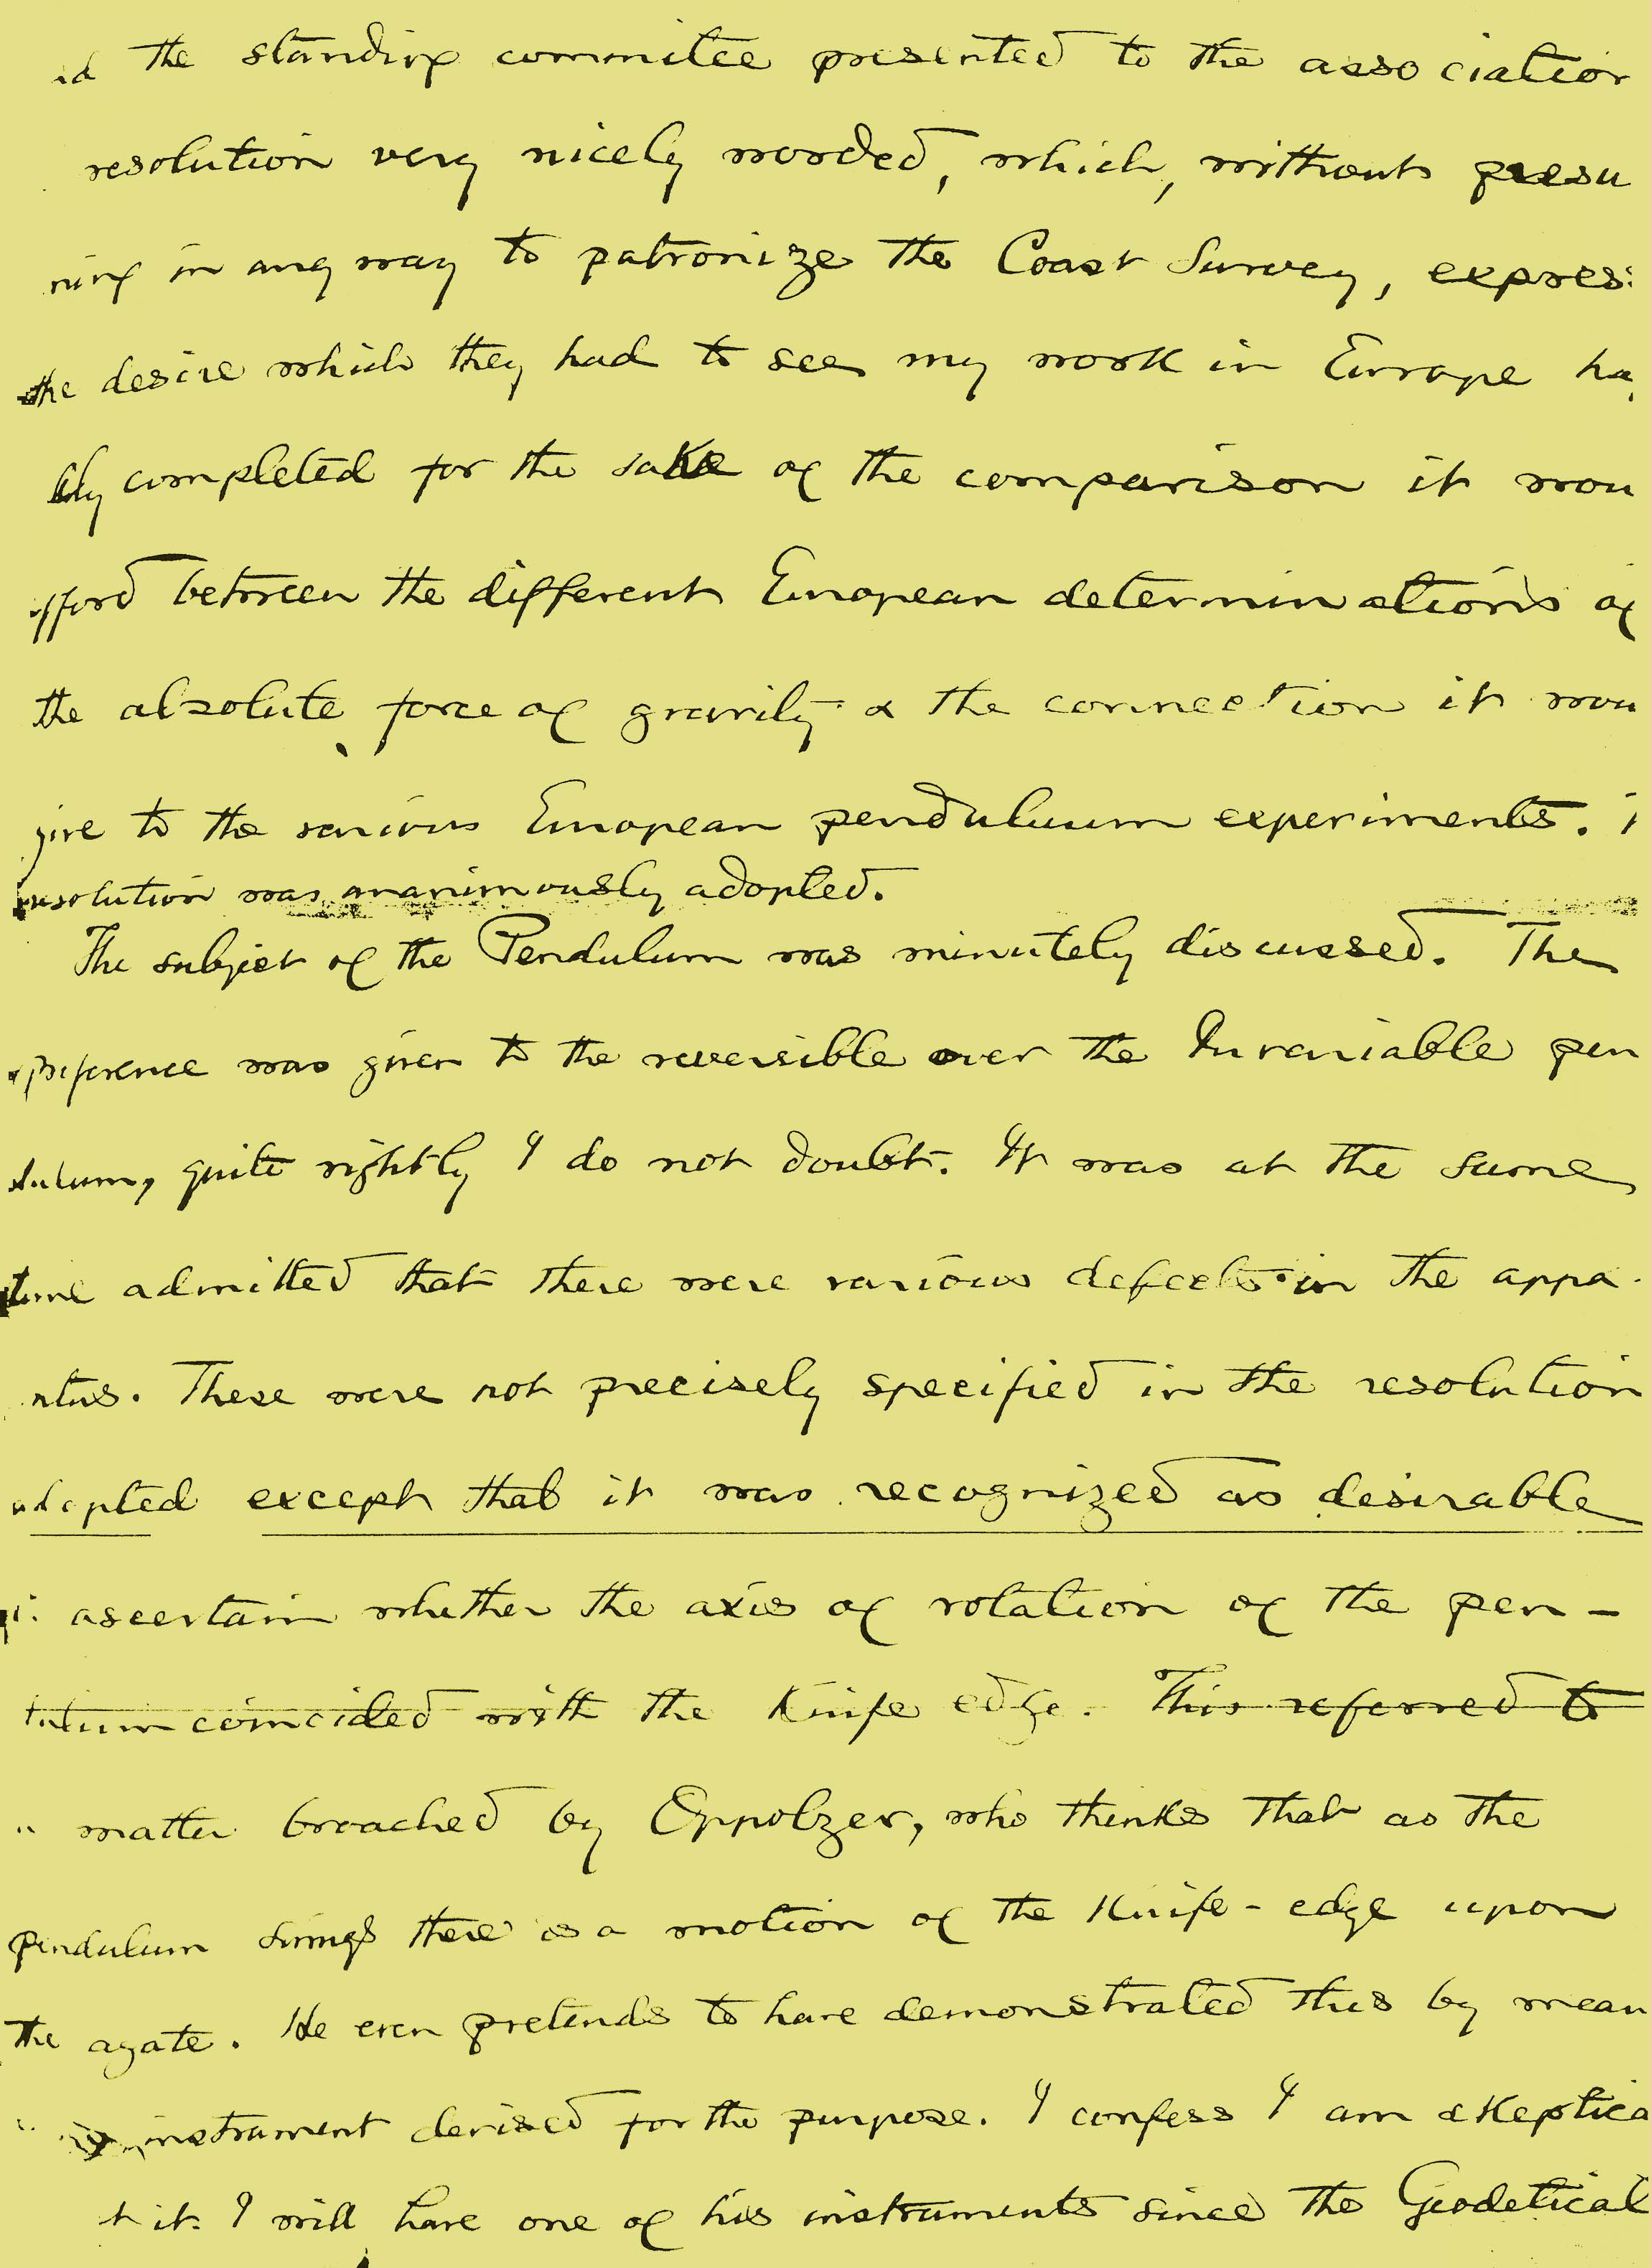 id the standing commitee presented to the association
resolution very nicely worded, which, without presu
ning in any way to patronize the Coast Survey, expres
the desire which they had to see my work in Europe ha
ily completed for the sake of the comparison it wou
afford between the different European determinations of
the absolute force of gravity & the connection it wou
give to the various European pendulum experiments.
resolution was unanimously adopted.
The subject of the Pendulum was minutely discussed. The
preference was given to the reversible over the Invariable pen
dulum, quite rightly I do not doubt. It was at the same
time admitted that there were various defects in the appa-
ratus. These were not precisely specified in the resolution
adopted except that it was recognized as desirable
ascertain whether the axis of rotation of the pen-
dulum coincided with the Knife edge. This referred to
matter broached by Oppolzer, who thinks that as the
pendulum swings there is a motion of the Knife-edge upon
the agate. He even pretends to have demonstrated this by mean
instrument devised for the purpose. I confess I am skeptica
t it. I will have one of his instruments since the Geodetical